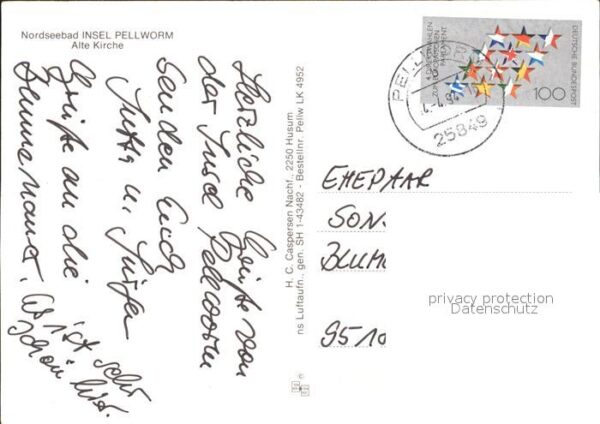 Nordseebad INSEL PELLWORM
Alte Kirche
Herzliche Grüße von
der Insel Pellworm
senden Euch
Jutta u. Jürgen
Grüße an die
Es ist sehr
schön hier.
H. C. Caspersen Nachf., 2250 Husum
ns Luftaufn., gen. SH 1-43482 - Bestellnr. Pellw LK 4952
4. DIREKTWAHLEN
ZUM EUROPÄISCHEN
PARLAMENT
DEUTSCHE BUNDESPOST
100
PELLWORM
25849
EHEPAAR
SON
BLUM
9510
privacy protection
Datenschutz